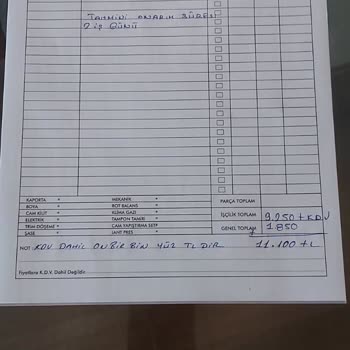 TAHMİNİ ONARIM SÜRESİ
2 İŞ GÜNÜ
KAPORTA
BOYA
CAM KELİT
ELEKTRİK
TRİM DÖŞEME
ŞASE
MEKANİK
ROT BALANS
KLİMA GAZI
TAMPON TAMİRİ
CAM YAPIŞTIRMA SETİ
JANT PRES
PARÇA TOPLAM
İŞÇİLİK TOPLAM 9.250 + KDV
GENEL TOPLAM 1.850
NOT: KDV DAHİL ONBİR BİN YÜZ TL DİR 11.100 TL
Fiyatlara K.D.V. Dahil Değildir